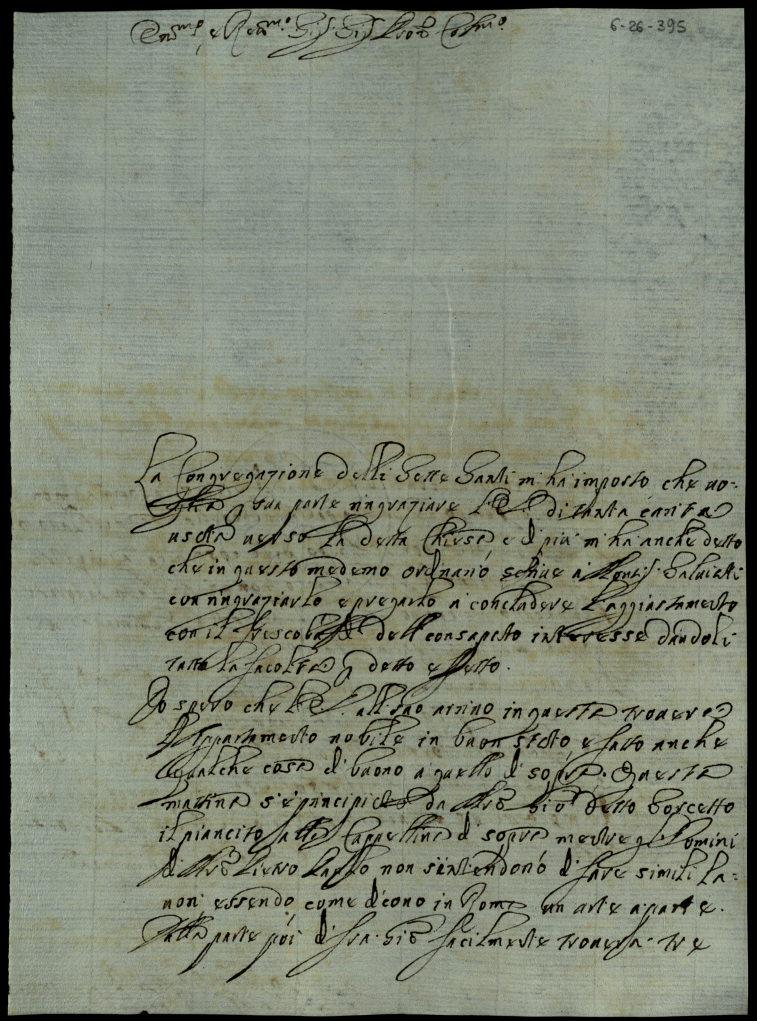 Em.mo e Rev.mo Sig. Sig. Pro.ne Col.mo
6-26-395
La Congregazione delli Sette Santi m'ha imposto che vo-
glia p sua parte ringraziare V.E. di tanta carità
usata verso la detta Chiesa e di più m'ha anche detto
che in questo medemo ordinario scrive a Mons.r Salviati
con ringraziarlo e pregarlo a concludere l'aggiustamento
con il Frescobaldi dell consaputo interesse dandoli
tutta la facoltà p detto effetto.
Io spero che V.E. all suo arrivo in questa troverà
l'Appartamento nobile in buon stato e fatto anche
qualche cosa di buono a quello di sopra. Questa
mattina s'è principiato da Mro Gio detto Borcetto
il piancito della Cappellina di sopra mentre gl'Uomini
di Mro Pietro Paolo non s'intendono di fare simili la-
vori essendo come dicono in Roma un arte a parte.
Dalla parte poi di fra Gio facilmente troverà tre